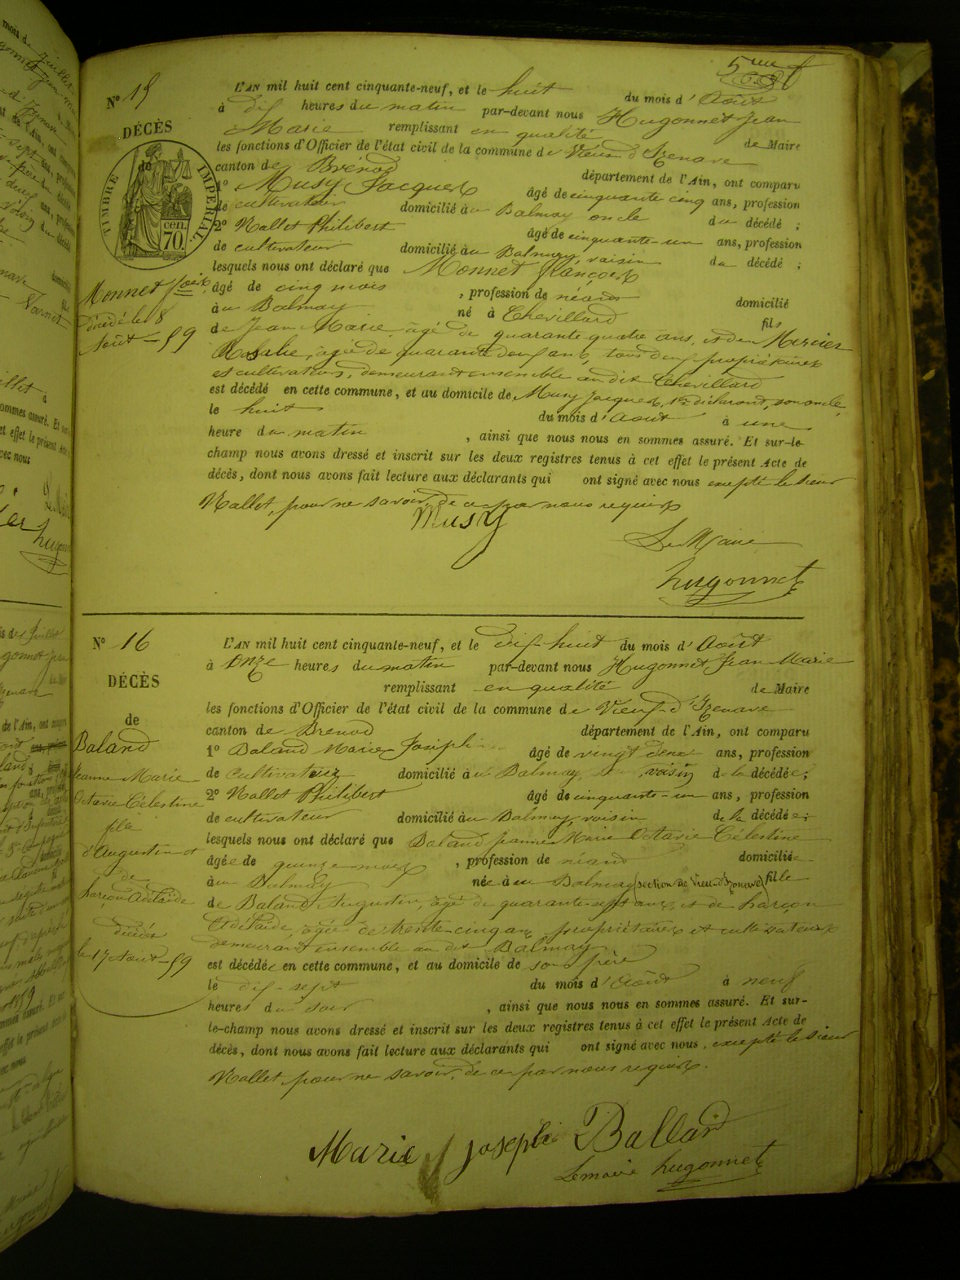 5me f
N° 15
L'AN mil huit cent cinquante-neuf, et le huit du mois d'Août
à dix heures du matin par-devant nous Hugonnet Jean
Marie remplissant en qualité de Maire
les fonctions d'Officier de l'état civil de la commune de Vieux d'Izenave
canton de Brénod département de l'Ain, ont comparu
1° Musy Jacques âgé de cinquante cinq ans, profession
de cultivateur domicilié au Balmay oncle du décédé ;
2° Nallet Philibert âgé de cinquante-un ans, profession
de cultivateur domicilié au Balmay, voisin du décédé ;
lesquels nous ont déclaré que Monnet François
âgé de cinq mois, profession de néant domicilié
au Balmay né à Chevillard fils
de Jean Marie, âgé de quarante quatre ans, et de Mercier
Rosalie, âgée de quarante deux ans, tous deux propriétaires
et cultivateurs, demeurant ensemble au dit Chevillard
est décédé en cette commune, et au domicile de Musy Jacques, 1er déclarant, son oncle,
le huit du mois d'août à une
heure du matin, ainsi que nous nous en sommes assuré. Et sur-le-
champ nous avons dressé et inscrit sur les deux registres tenus à cet effet le présent Acte de
décès, dont nous avons fait lecture aux déclarants qui ont signé avec nous excepté le sieur
Nallet, pour ne savoir, de ce par nous requis
Musy
Le Maire
hugonnet
DÉCÈS
de
TIMBRE IMPÉRIAL
70 cen.
Monnet
décédé le 8
Août 59
N° 16
L'AN mil huit cent cinquante-neuf, et le dix-huit du mois d'Août
à onze heures du matin par-devant nous Hugonnet Jean Marie
remplissant en qualité de Maire
les fonctions d'Officier de l'état civil de la commune de Vieux d'Izenave
canton de Brenod département de l'Ain, ont comparu
1° Baland Marie Joseph âgé de vingt deux ans, profession
de cultivateur domicilié au Balmay, voisin de la décédée ;
2° Nallet Philibert âgé de cinquante-un ans, profession
de cultivateur domicilié au Balmay, voisin de la décédée ;
lesquels nous ont déclaré que Baland Jeanne Marie Octavie Célestine
âgée de quinze mois, profession de néant domiciliée
au Balmay née au Balmay (section de Vieu d'Izenave) fille
de Baland Augustin, âgé de quarante-sept ans, et de Harçon
Adélaïde, âgée de trente-cinq ans, propriétaires et cultivateurs
demeurant ensemble au dit Balmay
est décédée en cette commune, et au domicile de son père
le dix-sept du mois d'Août à neuf
heures du soir, ainsi que nous nous en sommes assuré. Et sur-
le-champ nous avons dressé et inscrit sur les deux registres tenus à cet effet le présent Acte de
décès, dont nous avons fait lecture aux déclarants qui ont signé avec nous, excepté le sieur
Nallet pour ne savoir, de ce par nous requis.
Marie joseph Balland
Le maire hugonnet
DÉCÈS
de
Baland
Jeanne Marie
Octavie Célestine
fille
d'Augustin et
de
Harçon Adélaïde
décédée
le 17 Août 59